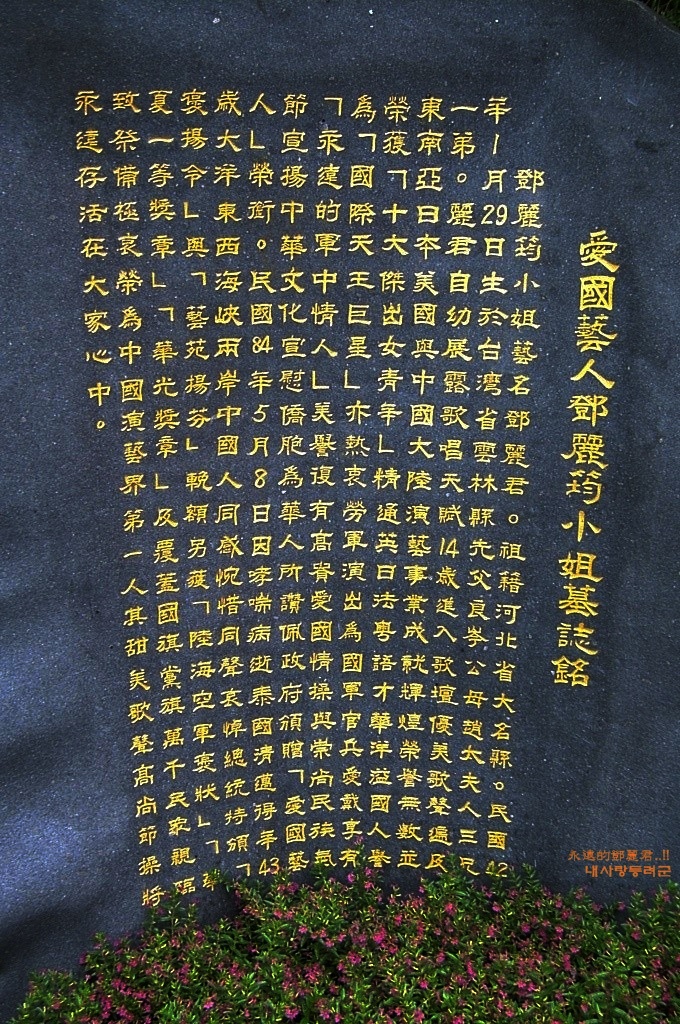 愛國藝人鄧麗筠小姐墓誌銘
鄧麗筠小姐藝名鄧麗君。祖籍河北省大名縣。民國42
年1月29日生於台灣省雲林縣先父良岑公母趙太夫人三兄
一弟。麗君自幼展露歌唱天賦14歲進入歌壇優美歌聲遍及
東南亞日本美國與中國大陸演藝事業成就輝煌榮譽無數並
榮獲「十大傑出女青年」精通英日法粵語才華洋溢國人譽
為「國際天王巨星」亦熱衷勞軍演出為國軍官兵愛戴享有
「永遠的軍中情人」美譽復有高脊愛國情操與崇尚民族氣
節宣揚中華文化宣慰僑胞為華人所讚佩政府頒贈「愛國藝
人」榮銜。民國84年5月8日因哮喘病逝泰國清邁得年43
歲大洋東西海峽兩岸中國人同感惋惜同聲哀悼總統特頒「
褒揚令」與「藝苑揚芬」輓額另獲「陸海空軍褒狀」「華
夏一等獎章」「華光獎章」及覆蓋國旗黨旗萬千民眾親臨
致祭備極哀榮為中國演藝界第一人其甜美歌聲高尚節操將
永遠存活在大家心中。
永遠的鄧麗君..!!
내사랑등려군